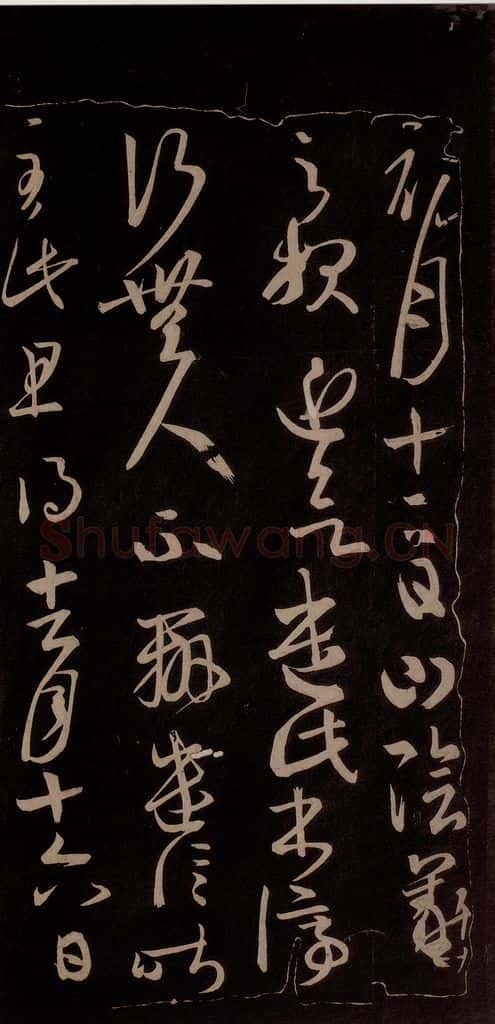 初月十二日山陰羲
之報近欲遣此書停
行無人不辦遣信昨
至此且得去月十六日
Shufawang.CN